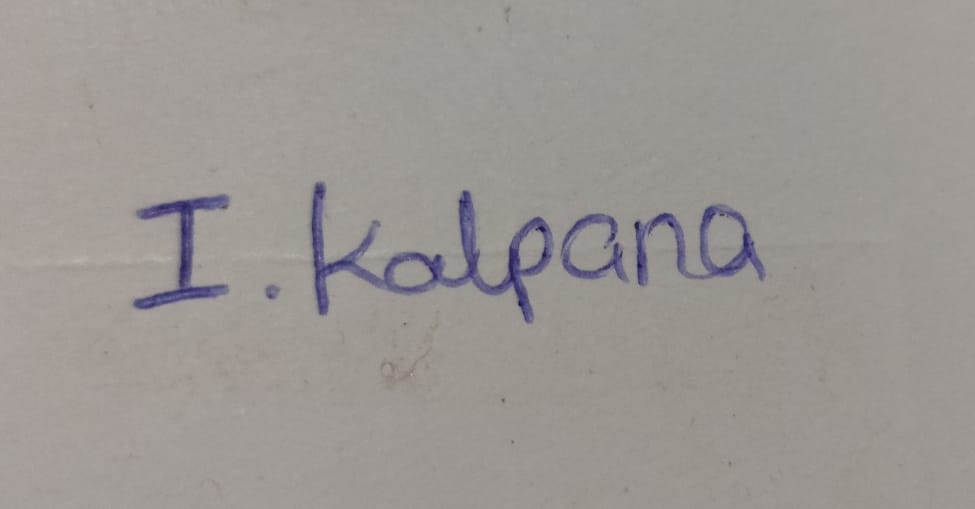 I. Kalpana